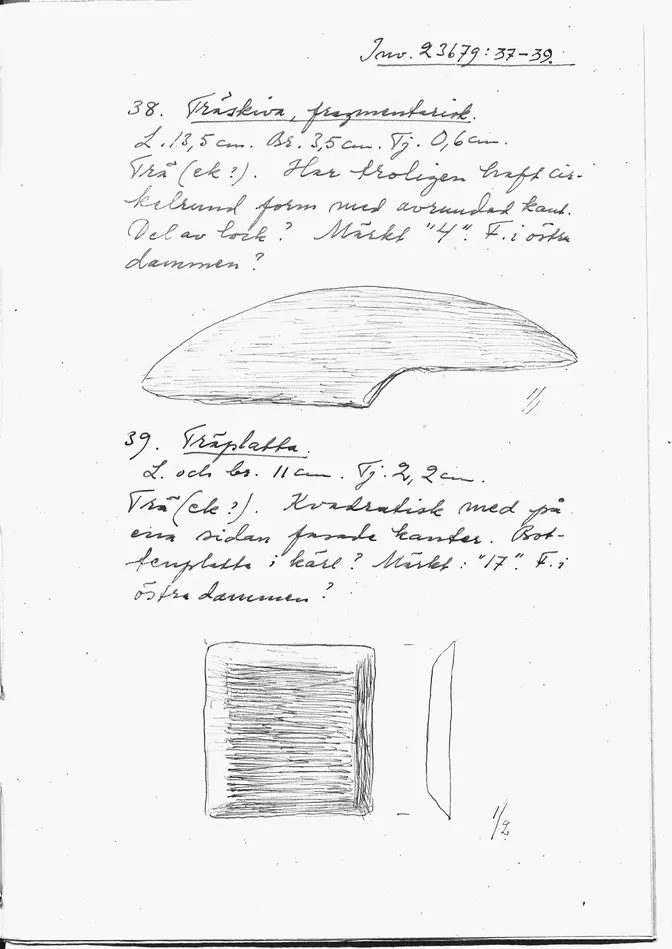 Inv. 23679:37-39.
38. Träskiva, fragmentarisk.
L. 13,5 cm. Br. 3,5 cm. Tj. 0,6 cm.
Trä (ek?). Har troligen haft cir-
kelrund form med avrundad kant.
Del av lock? Märkt "4". F. i östra
dammen?
1/1
39. Träplatta.
L. och br. 11 cm. Tj. 2,2 cm.
Trä (ek?). Kvadratisk med på
ena sidan fasade kanter. Bot-
tenplatta i kärl? Märkt: "17". F. i
östra dammen?
1/2